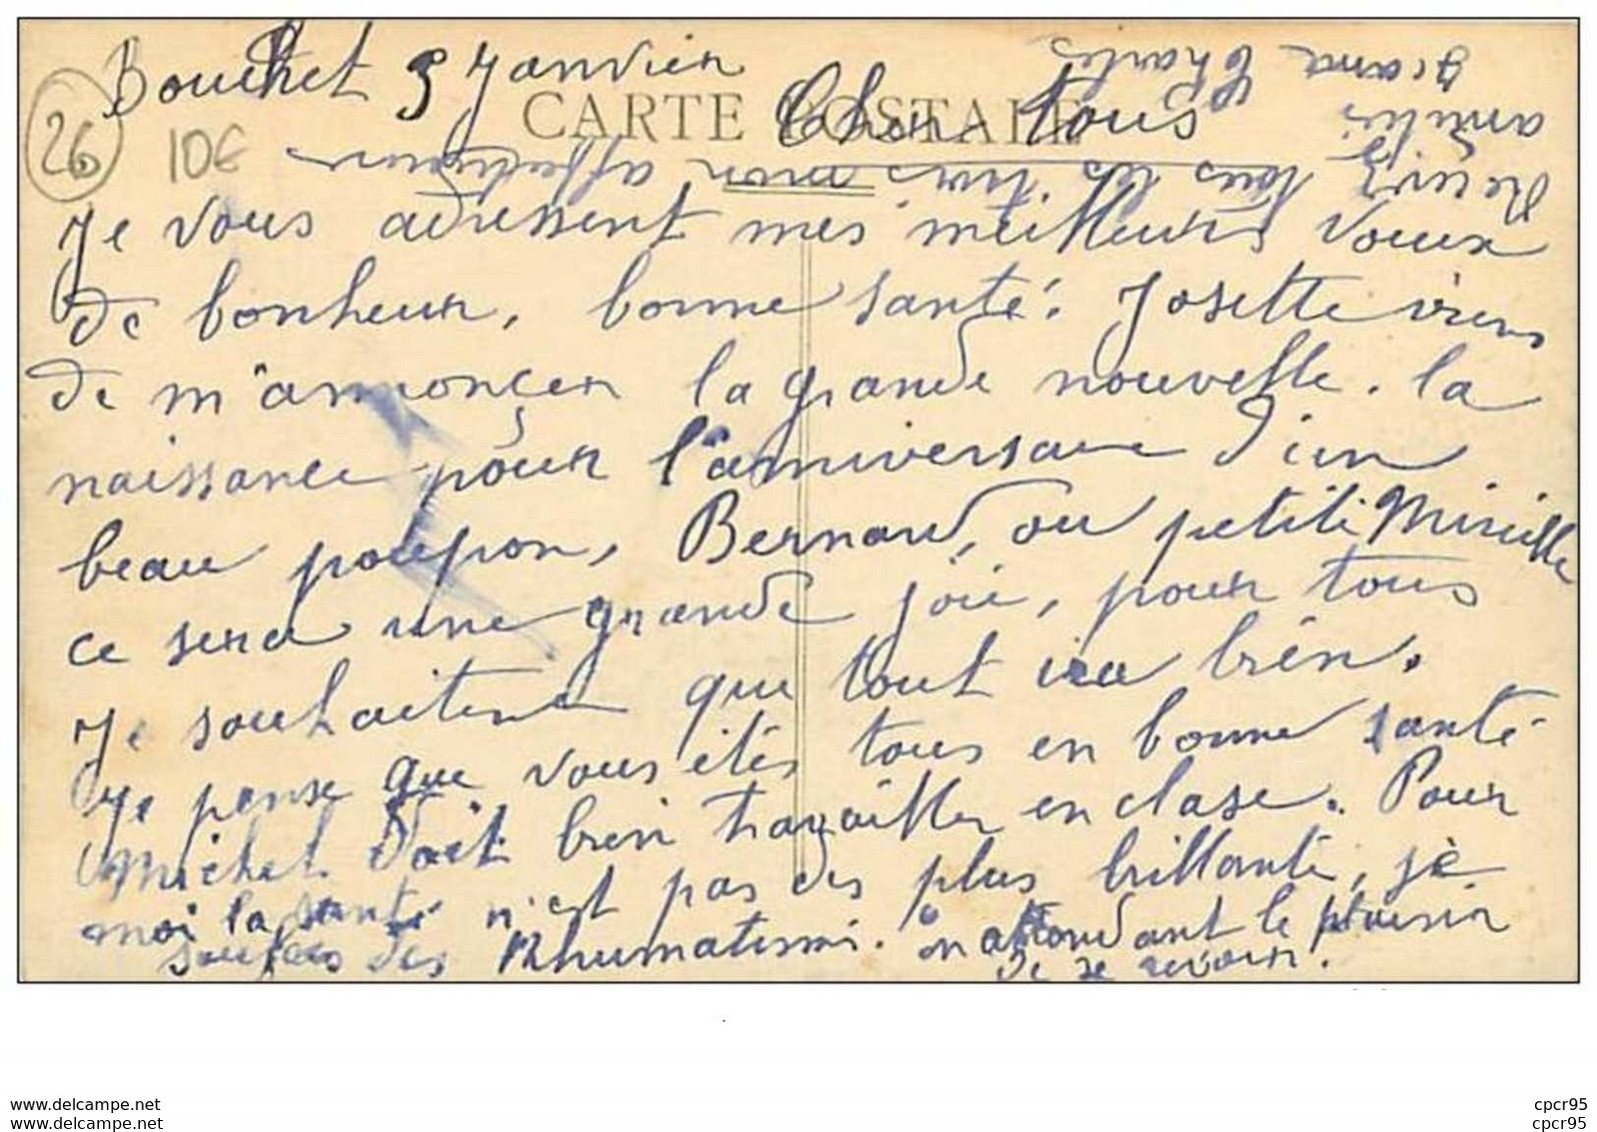 Bouchet 5 Janvier
26
10€
CARTE POSTALE
Cher tous
Je vous adressent mes meilleurs voeux
de bonheur, bonne santé. Josette viens
de m'annonçer la grande nouvelle. la
naissance pour l'anniversaire d'un
beau poupon, Bernard, ou petite Mireille
ce sera une grande joie, pour tous
Je souhaite que tout ira bien.
Je pense que vous êtes tous en bonne santé
Michel doit bien travailler en clase. Pour
moi la santé n'est pas des plus brillante, je
soufers des Rhumatismes. en attendant le plaisir
de se revoir.
Recois tous les trois mon affectueux
amitiés
Jeanne Charles
www.delcampe.net
www.delcampe.net
cpcr95
cpcr95